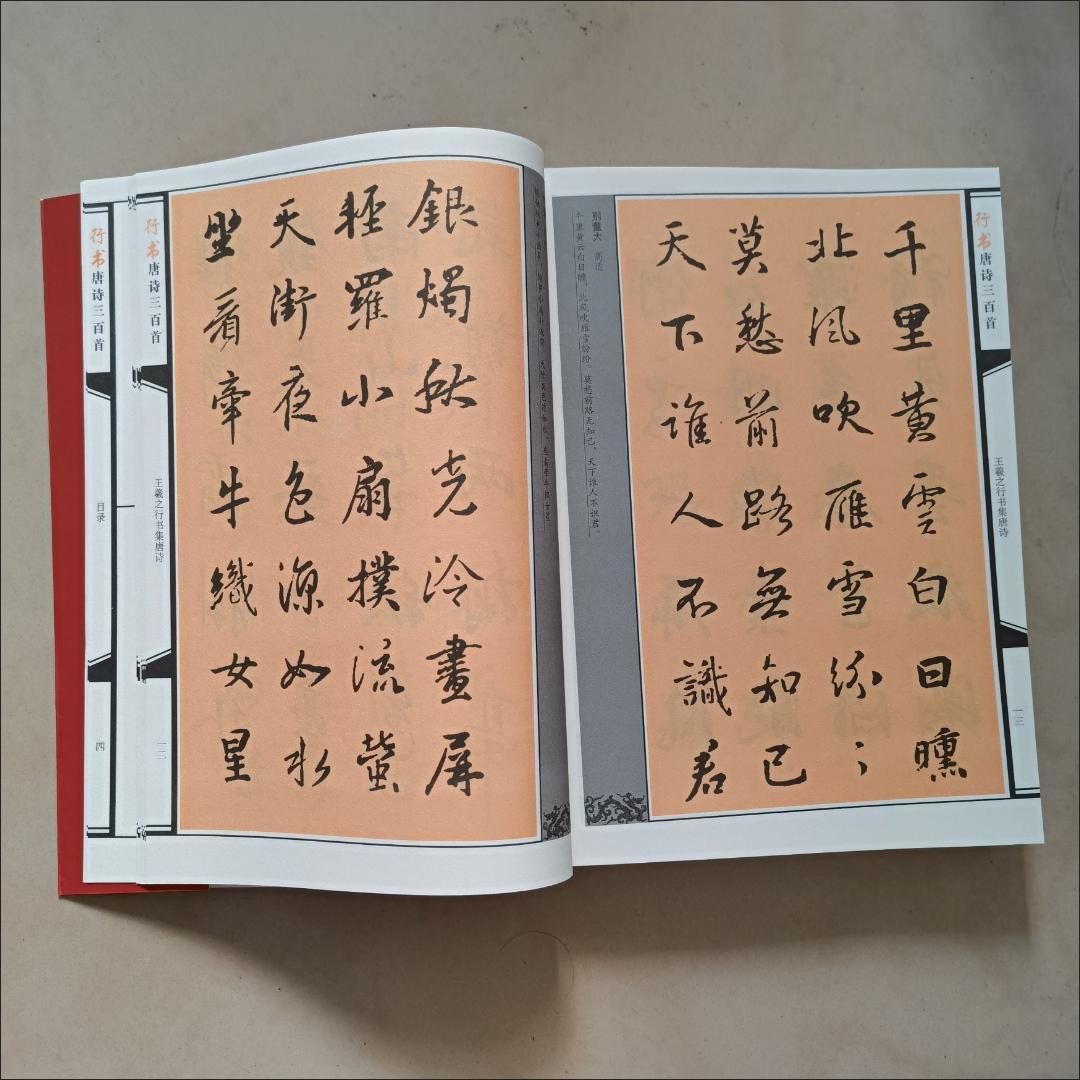 行书唐诗三百首
目录
四
行书唐诗三百首
王羲之行书集唐诗
一二
銀燭秋光冷畫屏
輕羅小扇撲流螢
天街夜色涼如水
坐看牽牛織女星
行书唐诗三百首
王羲之行书集唐诗
一三
千里黃雲白日曛
北風吹雁雪紛〻
莫愁前路無知己
天下誰人不識君
别董大 高适
千里黄云白日曛，北风吹雁雪纷纷。莫愁前路无知己，天下谁人不识君。